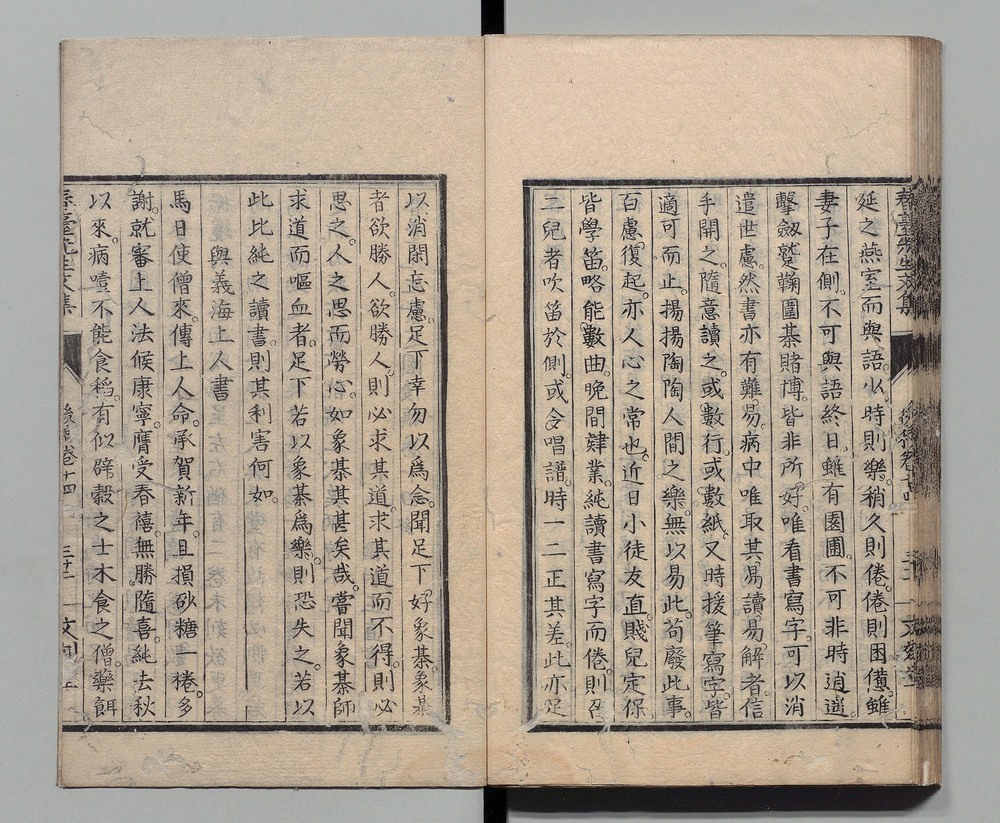 延之燕室而與語。少時則樂。稍久則倦。倦則困憊。雖
妻子在側。不可與語終日。雖有園圃。不可非時逍遙。
擊劔鼛鞠圍棊賭博。皆非所好。唯看書寫字。可以消
遣世慮。然書亦有難易。病中唯取其易讀易解者。信
手開之。隨意讀之。或數行。或數紙。又時援筆寫字。皆
適可而止。揚揚陶陶。人間之樂。無以易此。苟廢此事。
百慮復起。亦人心之常也。近日小徒友直。賤兒定保。
皆學笛。略能數曲。晚間肄業。純讀書寫字而倦。則召
二兒者吹笛於側。或令唱譜。時一二正其差。此亦足
以消閑忘慮。足下幸勿以爲念。聞足下好象棊。象棊
者欲勝人。欲勝人。則必求其道。求其道而不得。則必
思之。人之思而勞心。如象棊其甚矣哉。嘗聞象棊師
求道而嘔血者。足下若以象棊爲樂。則恐失之。若以
此比純之讀書。則其利害何如。
與義海上人書
馬日使僧來。傳上人命。承賀新年。且損砂糖一棬。多
謝。就審上人法候康寧。膺受春禧。無勝隨喜。純法秋
以來。病噎不能食稻。有似辟穀之士木食之僧。藥餌
春臺先生文集
後稿卷十四